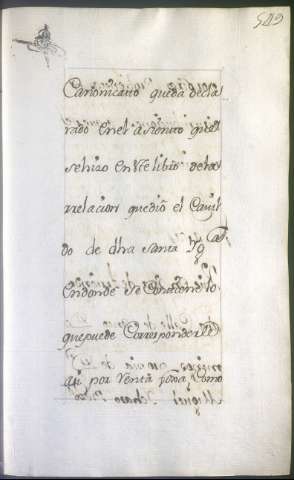 Canonicato queda decla
rado en el asiento que
se hizo en Este libro de la
rrelacion que dio el Cavil
do de dha santa Yg.ª
en donde se Contiene lo
que puede Corresponderle
aqui por Venta como